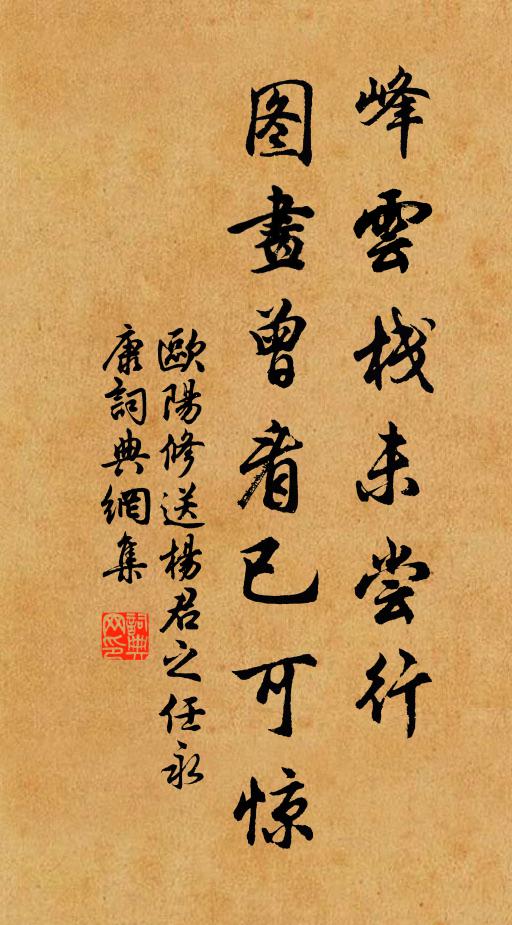 峰雲棧未尝行
图畫曾看已可惊
歐陽修送楊君之任永
康詞典網集
詞典
网印